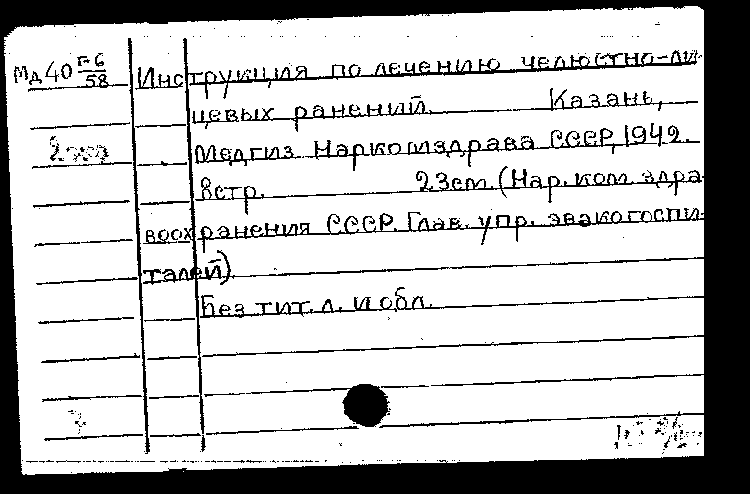 Мд 40 П-6/58
Инструкция по лечению челюстно-ли-
цевых ранений. Казань,
Медгиз Наркомздрава СССР, 1942.
8стр. 23см (Нар. ком здра-
воохранения СССР. Глав. упр. эвакогоспи-
талей)
Без тит. л. и обл.